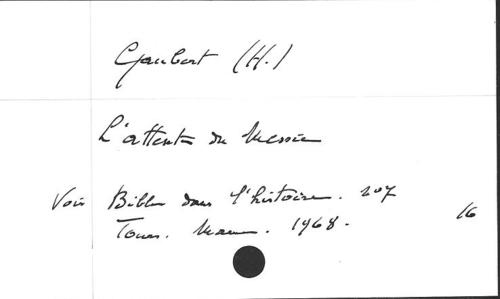 Gaubert (H.)
L'attente du Messie
Voir Bible dans l'histoire. 207
Tours. Mame. 1968.
16